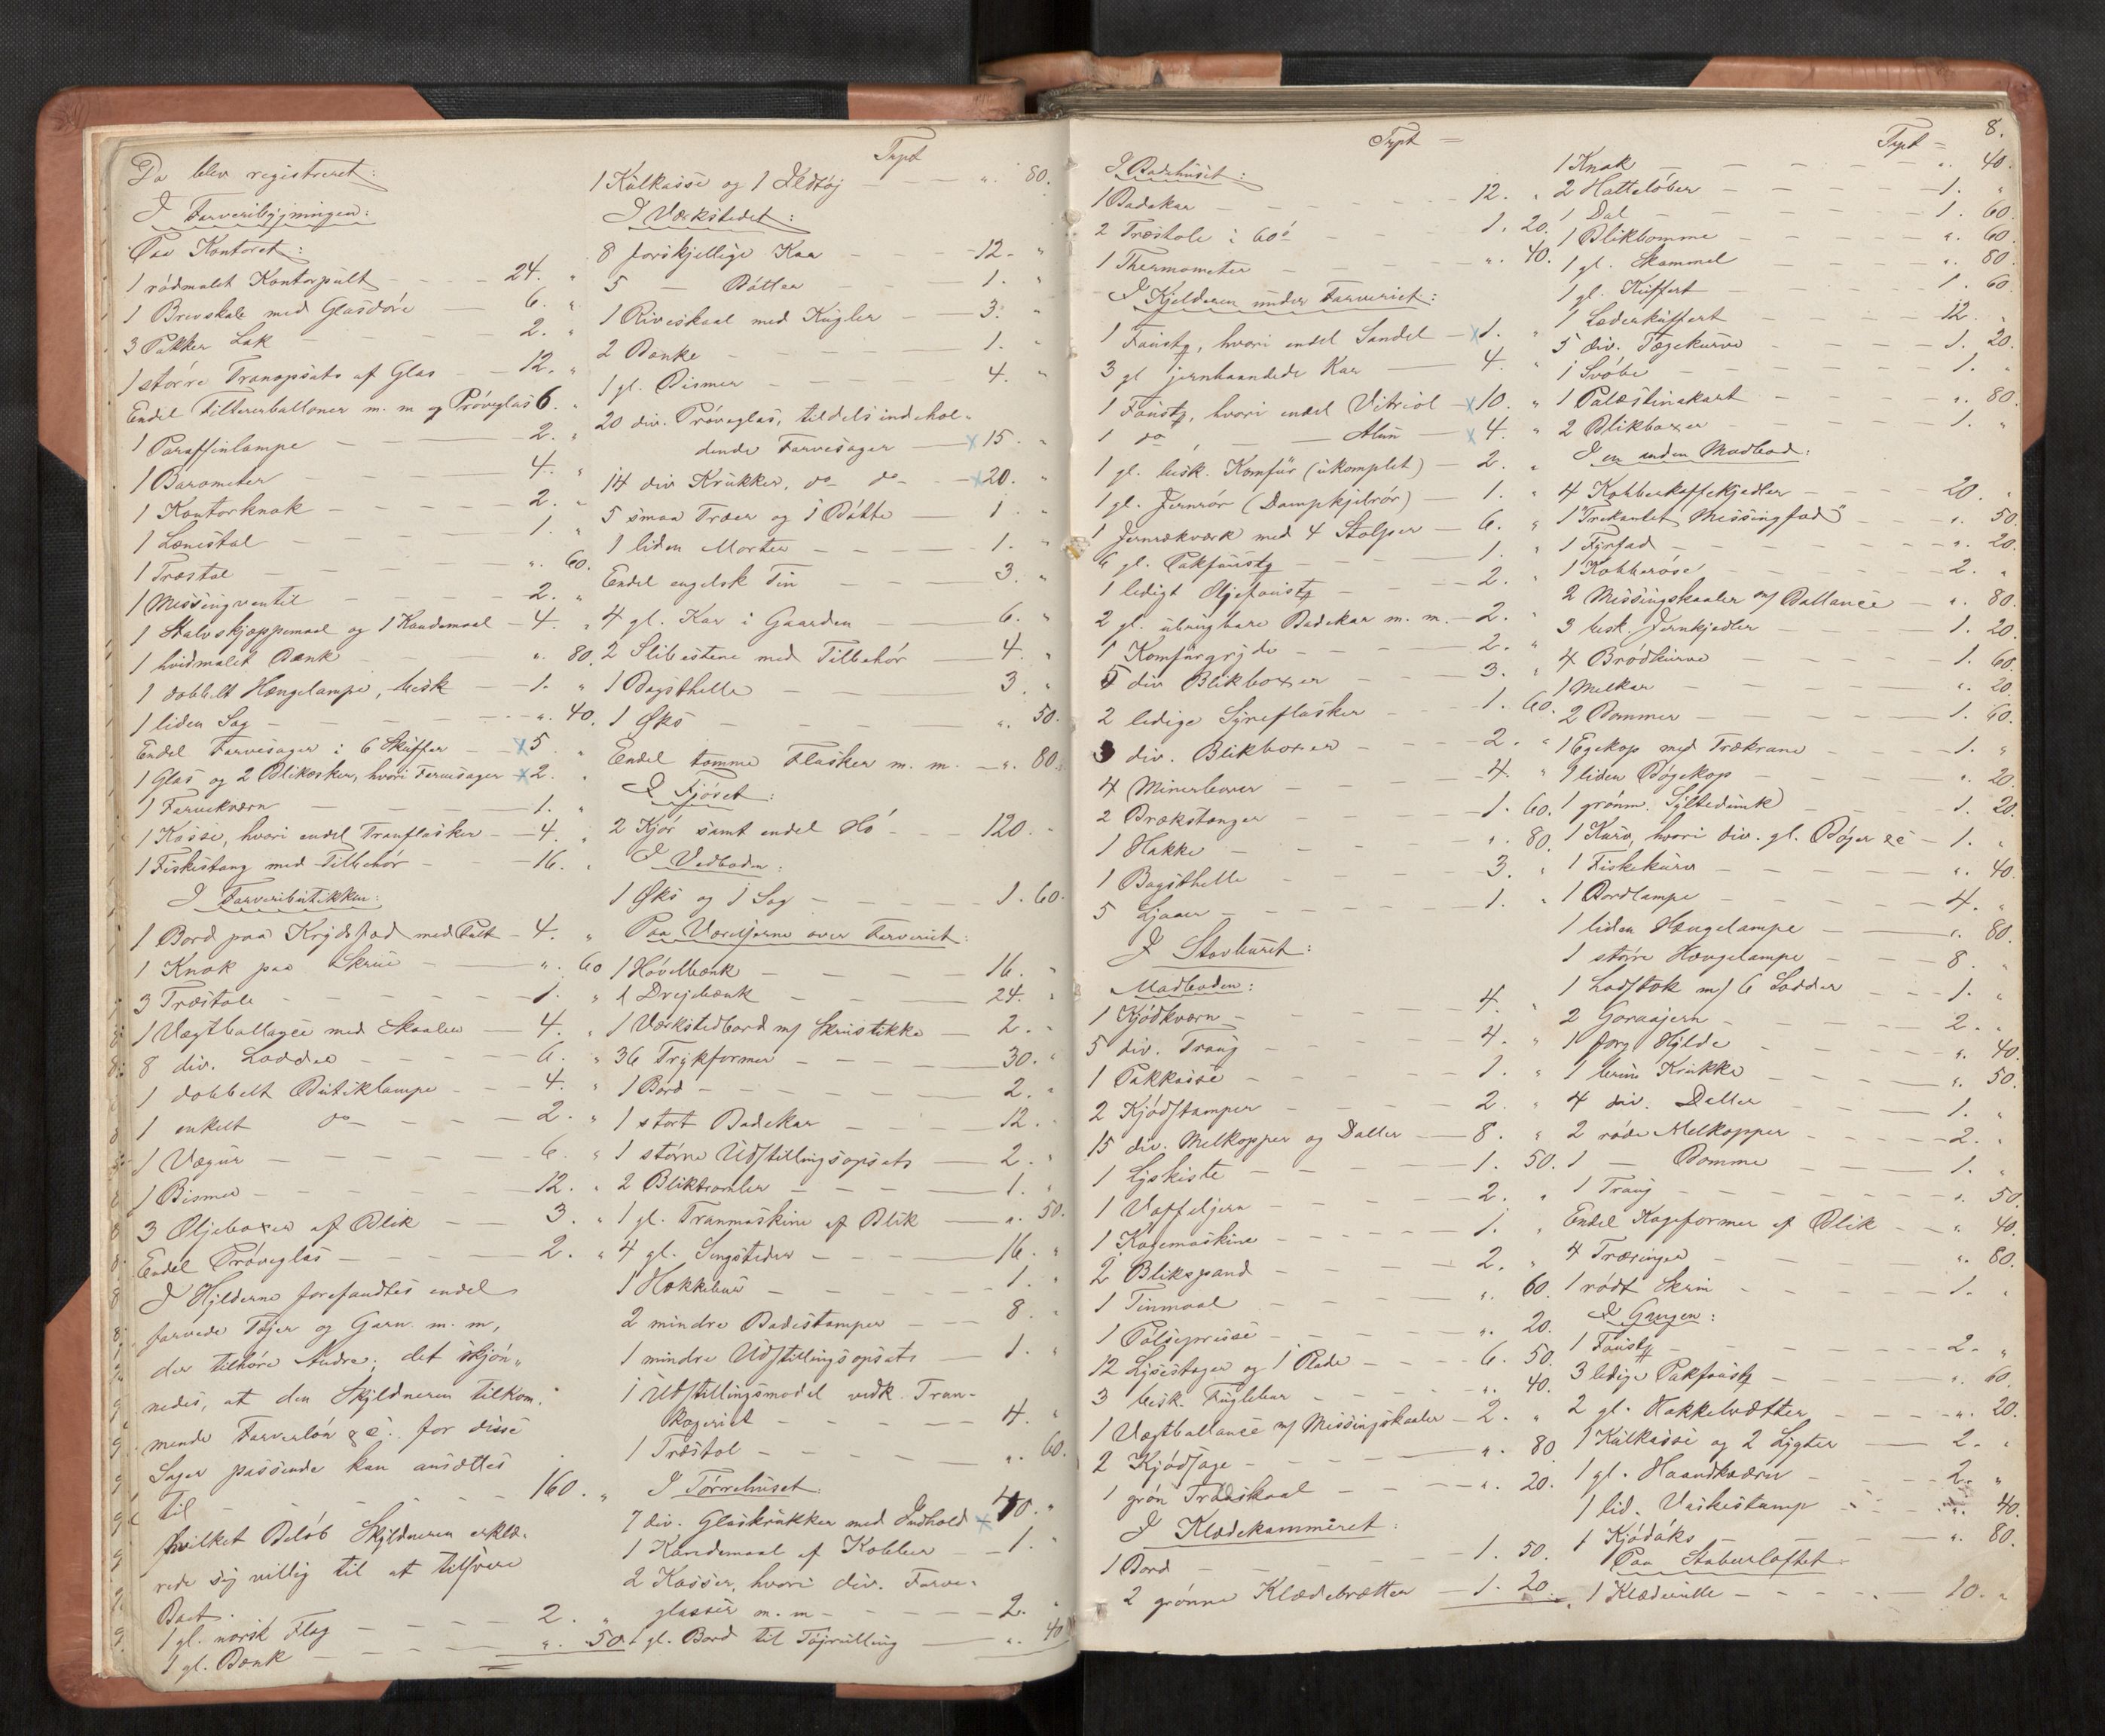 Da blev registreret:
I Farveribygningen:
Paa Kontoret:
1 rödmalet Kontorpult - - 24. "
1 Brevskab med Glasdöre - 6. "
3 Pakker Lak - - - 2. "
1 större Tranopsats af Glas - - 12. "
Endel Filtrerballoner m. m og Pröveglas 6. "
1 Paraffinlampe - - - 2. "
1 Barometer - - - 4. "
1 Kontorknak - - - 2. "
1 Lænestol - - - 1. "
1 Træstol - - - ". 60.
1 Messingventil - - - 2. "
1 Halvskjæppemaal og 1 Kandemaal - 4. "
1 hvidmalet Bænk - - ". 80.
1 dobbelt Hængelampe, besk - 1. "
1 liden Sag - - - ". 40.
Endel Farvesager i 6 Skuffer - x 5 "
1 Glas og 2 Blikæsker, hvori Farvesager - x 2. "
1 Farvekværn - - - 1. "
1 Kasse, hvori endel Tranflasker - - 4. "
1 Fiskestang med Tilbehör - - 16. "
I Farveributikken:
1 Bord paa Krydsfod med Pult - 4. "
1 Knak paa Skrue - - ". 60
3 Træstole - - - 1. "
1 Vægtballance med Skaaler - 4. "
8 div. Lodder - - - 6. "
1 dobbelt Butiklampe - - 4. "
1 enkelt do - - 2. "
1 Vægur - - - 6. "
1 Bismer - - - 12. "
3 Oljeboxer af Blik - - 3. "
Endel Pröveglas - - 2. "
I Hylderne forefandtes endel
farvede Töjer og Garn m. m,
der tilhöre Andre; det skjön-
nedes, at den Skyldneren tilkom-
mende Farverlön &c. for disse
Sager passende kan ansættes
til - - - 160. "
hvilket Belöb Skyldneren erklæ-
rede sig villig til at tilsvare
Boet.
1 gl. norsk Flag - - - 2. "
1 gl. Bænk - - - ". 50.
Trpt
1 Kulkasse og 1 Ildtöj - - ". 80.
I Værkstedet:
8 forskjellige Kar - - - 12. "
5 — Bötter - - - 1. "
1 Riveskaal med Kugler - 3. "
2 Bænke - - - 1. "
1 gl. Bismer - - - 4. "
20 div. Pröveglas, tildels indehol-
dende Farvesager - x 15. "
14 div Krukker, do do - x 20. "
5 smaa Træer og 1 Bötte 1 "
1 liden Morter - - - 1. "
Endel engelsk Tin - - 3. "
4 gl. Kar i Gaarden - - 6. "
2 Slibestene med Tilbehör - 4. "
1 Bagsthelle - - - 3. "
1 Øks - - - ". 50.
Endel tomme Flasker m. m. - ". 80.
I Fjöset:
2 Kjör samt endel Hö - - 120. "
I Vedboden:
1 Øks og 1 Sag - - - 1. 60.
Paa Værelserne over Farveriet:
1 Hövelbænk - - - 16. "
1 Drejebænk - - - 24. "
1 Værkstedbord m/ Skrustikke 2. "
36 Trykformer - - - 30. "
1 Bord - - - 2. "
1 stort Badekar - - - 12. "
1 större Udstillingsopsats - 2. "
2 Bliktromler - - - 1. "
1 gl. Tranmaskine af Blik - ". 50.
4 gl. Sengsteder - - - 16. "
1 Hakkebur - - - 1. "
2 mindre Badestamper - - 8. "
1 mindre Udstillingsopsats - 1. "
1 Udstillingsmodel vedk. Tran-
kogeriet - - - 4. "
1 Træstol - - - ". 60.
I Törrehuset.
7 div. Glaskrukker med Indhold - x 10. "
1 Kandemaal af Kobber - 1. "
2 Kasser, hvori div. Farve-
glasser m. m - - - 2. "
1 gl. Bord til Töjrulling - ". 40
Trpt =
I Badehuset:
1 Badekar - - - 12. "
2 Træstole i 60 ö - - 1. 20.
1 Thermometer - - - ". 40.
I Kjelderen under Farveriet:
1 Fustg, hvori endel Sandel - x 1. "
3 gl jernbaandede Kar - 4. "
1 Fustg, hvori endel Vitriol - x 10. "
1 do, — — Alun - x 4. "
1 gl. besk. Komfur (ukomplet) - 2. "
1 gl. Jernrör (Dampkjelrör) - 1. "
1 Jernrækværk med 4 Stolper - 6. "
6 gl. Pakfustg - - - 1. "
1 ledigt Oljefustg - - 2. "
2 gl. ubrugbare Badekar m. m. - 2. "
1 Komfurgryde - - - 2. "
5 div Blikboxer - - - 3. "
2 ledige Syreflasker - - 1. 60.
3 div. Blikboxer - - - 2. "
4 Minerborer - - - 4. "
2 Brækstænger - - - 1. 60.
1 Hakke - - - ". 80.
1 Bagsthelle - - - 3. "
5 Ljaaer - - - 1. "
I Stavburet:
Madboden:
1 Kjödkværn - - - 4. "
5 div. Traug - - - 4. "
1 Pakkasse - - - 1. "
2 Kjödstamper - - - 2. "
15 div. Melkopper og Daller - 8. "
1 Lyskiste - - - 1. 50.
1 Vaffeljern - - - 2. "
1 Kagemaskine - - - 1. "
2 Blikspand - - - 2. "
1 Tinmaal - - - ". 60.
1 Pölsepresse - - - ". 20.
12 Lysestager og 1 Plade - - 6. 50.
3 besk. Fuglebur - - - ". 40.
1 Vægtballance m/ Missingskaaler - 2. "
2 Kjödsage - - - ". 80
1 grön Trædskaal - - ". 20.
I Klædekammeret:
1 Bord - - - 1. 50.
2 grönne Klædebrætter - 1. 20.
Trpt = 8.
1 Knak - - - ". 40.
2 Hatteløber - - - 1. "
1 Dal - - - 1. 60.
1 Blikbomme - - - ". 60.
1 gl. Skammel - - - ". 80.
1 gl. Kuffert - - - 1. 60.
1 Læderkuffert - - - 12. "
5 div. Tægekurve - - 1. 20.
1 Svöbe - - - 1. "
1 Palæstinakart - - - ". 80.
2 Blikboxer - - - 1. "
I en anden Madbod:
4 Kobberkaffekjedler - - 20. "
1 "Trekantet Missingfad" - ". 50.
1 Fyrfad - - - ". 20.
1 Kobberöse - - - 2. "
2 Missingskaaler m/ Ballance - ". 80.
3 besk. Jernkjedler - - 1. 20.
4 Brödkurve - - - 1. 60.
1 Melkar - - - ". 20.
2 Bommer - - - 1. 60.
1 Egekop med Trækrane - 1. "
1 liden Bögekop - - - ". 20.
1 grönm. Syltedunk - - 1. 20.
1 Kurv, hvori div. gl. Böger &c - 1. "
1 Fiskekurv - - - ". 40.
1 Bordlampe - - - 4. "
1 liden Hængelampe - ". 80.
1 större Hængelampe - 8. "
1 Lodstok m/ 6 Lodder - - 1. "
2 Goraajern - - - 2. "
1 forg. Hylde - - - ". 40.
1 brun Krukke - - - ". 50.
4 div. Daller - - - 1. "
2 röde Melkopper - - - 2. "
1 — Bomme - - - 1. "
1 Traug - - - ". 50
Endel Kageformer af Blik - ". 40.
4 Træringer - - - ". 80.
1 rödt Skrin - - - 1. "
I Gangen:
1 Fustg - - - 2. "
3 ledige Pakfustg - - ". 60.
2 gl. Hakkebrætter - - ". 20.
1 Kulkasse og 2 Lygter - 2. "
1 gl. Haandkværn - - 2. "
1 lid. Vaskestamp - - ". 40.
1 Kjödöks - - - ". 80.
Paa Staburloftet:
1 Klæderulle - - - 10. "